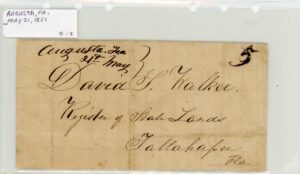 AUGUSTA, GA.
MAY 21, 1851
G-2
Augusta. Ga
21st May
5
David S. Walker.
Register of State Lands
Tallahassee
Fla.